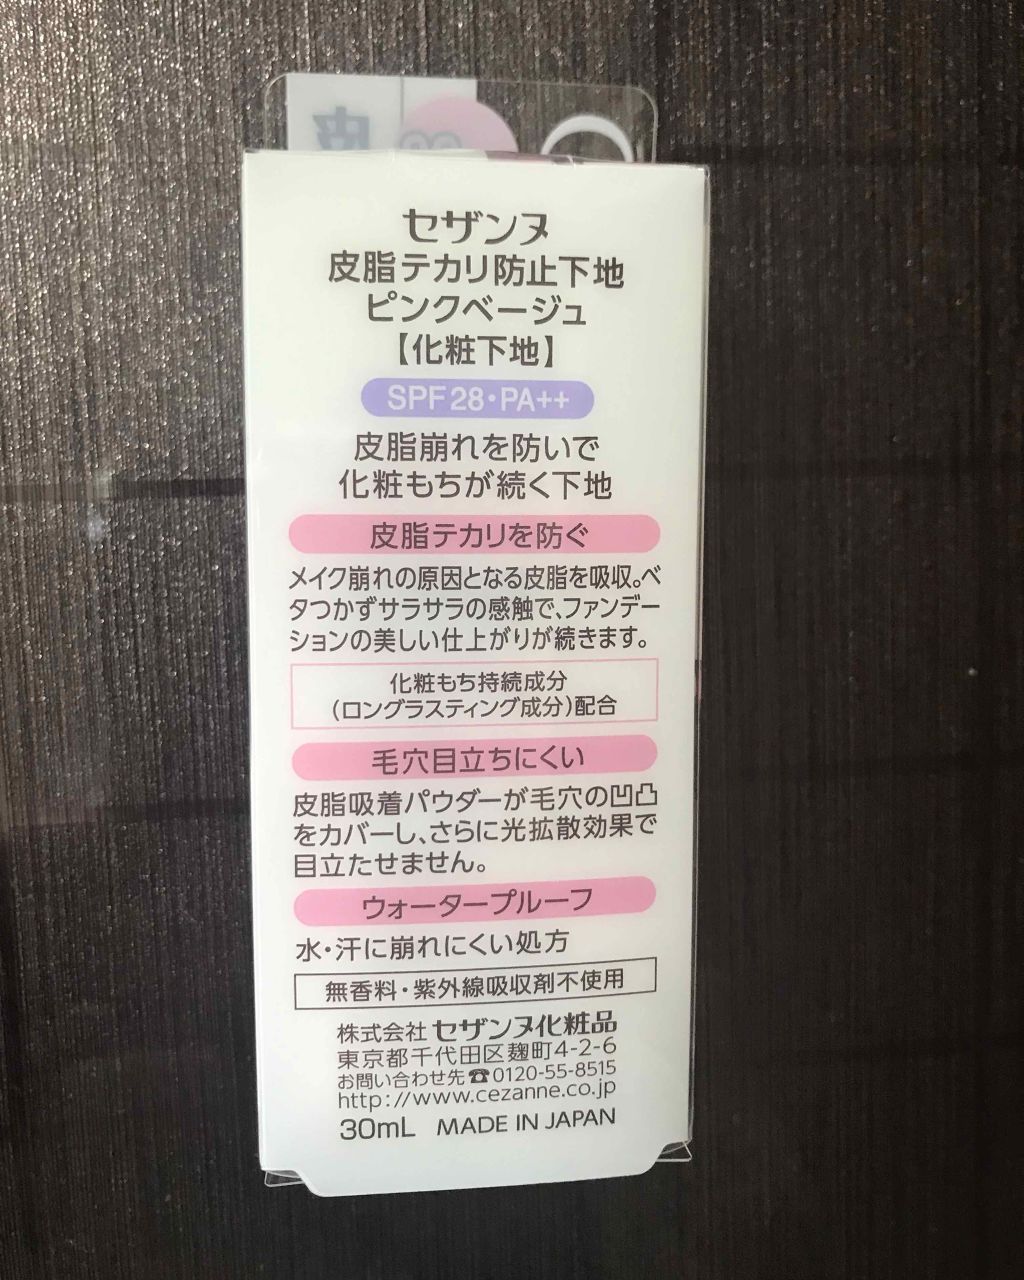 セザンヌ
皮脂テカリ防止下地
ピンクベージュ
【化粧下地】
SPF28・PA++
皮脂崩れを防いで
化粧もちが続く下地
皮脂テカリを防ぐ
メイク崩れの原因となる皮脂を吸収。ベ
タつかずサラサラの感触で、ファンデー
ションの美しい仕上がりが続きます。
化粧もち持続成分
(ロングラスティング成分)配合
毛穴目立ちにくい
皮脂吸着パウダーが毛穴の凹凸
をカバーし、さらに光拡散効果で
目立たせません。
ウォータープルーフ
水・汗に崩れにくい処方
無香料・紫外線吸収剤不使用
株式会社 セザンヌ化粧品
東京都千代田区麹町4-2-6
お問い合わせ先☎0120-55-8515
http://www.cezanne.co.jp
30mL MADE IN JAPAN